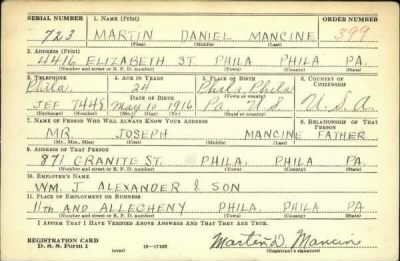 SERIAL NUMBER 1. NAME (Print) ORDER NUMBER
723 MARTIN DANIEL MANCINE 399
(First) (Middle) (Last)
2. ADDRESS (Print)
4416 ELIZABETH ST. PHILA PHILA PA.
(Number and street or R. F. D. number) (Town) (County) (State)
3. TELEPHONE 4. AGE IN YEARS 5. PLACE OF BIRTH 6. COUNTRY OF CITIZENSHIP
Phila. 24 Phila, Phila
DATE OF BIRTH (Town or county)
JEF 7448 May 10 1916 Pa U.S. U.S.A.
(Exchange) (Number) (Mo.) (Day) (Yr.) (State or country)
7. NAME OF PERSON WHO WILL ALWAYS KNOW YOUR ADDRESS 8. RELATIONSHIP OF THAT PERSON
MR. JOSEPH MANCINE FATHER
(Mr., Mrs., Miss) (First) (Middle) (Last)
9. ADDRESS OF THAT PERSON
871 GRANITE ST. PHILA. PHILA PA.
(Number and street or R. F. D. number) (Town) (County) (State)
10. EMPLOYER'S NAME
WM. J. ALEXANDER & SON
11. PLACE OF EMPLOYMENT OR BUSINESS
11TH AND ALLEGHENY PHILA. PHILA PA.
(Number and street or R. F. D. number) (Town) (County) (State)
I AFFIRM THAT I HAVE VERIFIED ABOVE ANSWERS AND THAT THEY ARE TRUE.
REGISTRATION CARD
D. S. S. Form 1 (over) Martin D. Mancin
(Registrant's signature)